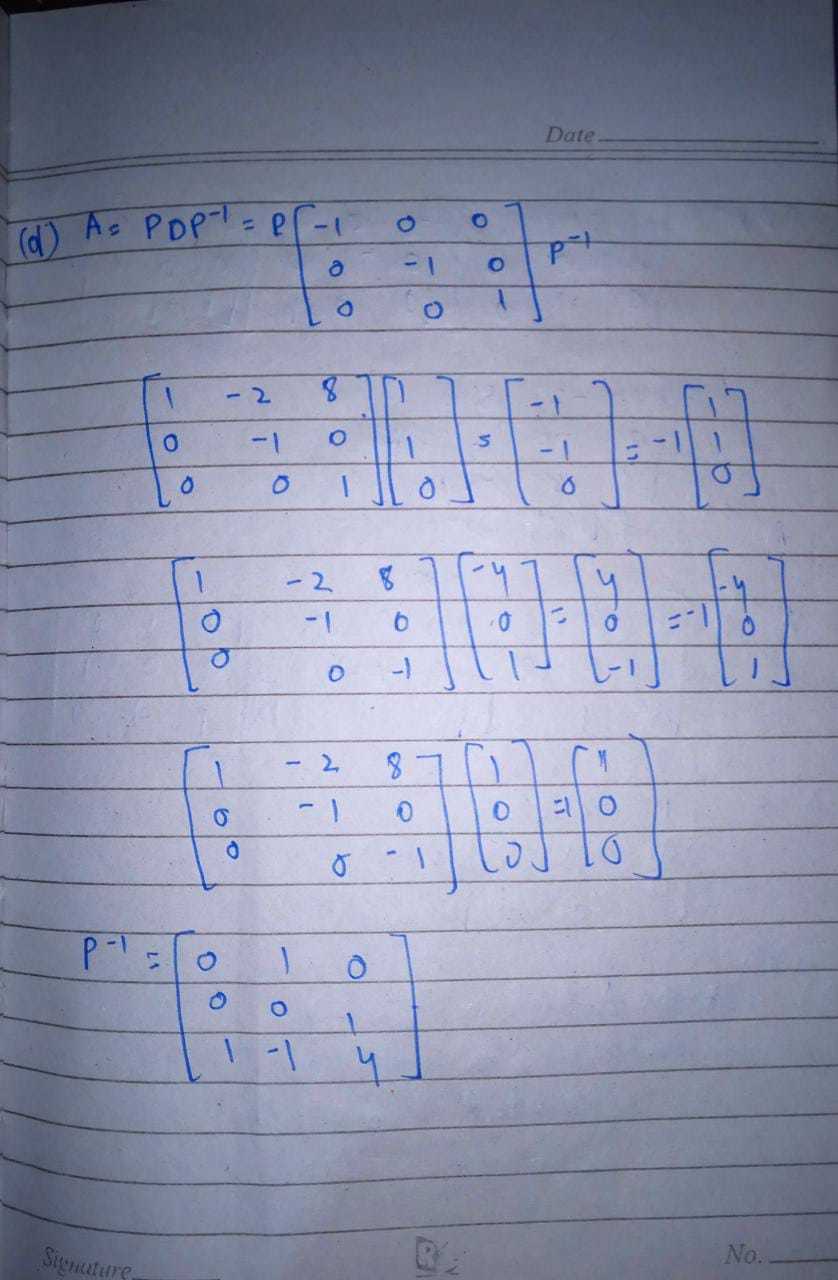 Date
(d) A = PDP⁻¹ = P [-1 0 0; 0 -1 0; 0 0 1] P⁻¹
[1 -2 8; 0 -1 0; 0 0 1] [1; 1; 0] = [-1; -1; 0] = -1 [1; 1; 0]
[1 -2 8; 0 -1 0; 0 0 -1] [-4; 0; 1] = [4; 0; -1] = -1 [-4; 0; 1]
[1 -2 8; 0 -1 0; 0 0 -1] [1; 0; 0] = 1 [1; 0; 0]
P⁻¹ = [0 1 0; 0 0 1; 1 -1 4]
Signature
No.